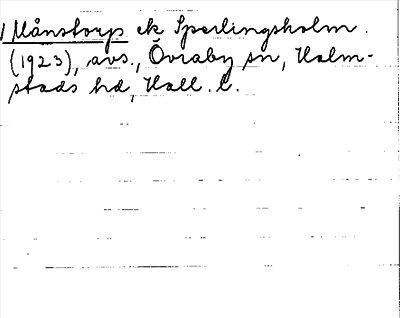 Månstorp ek Sperlingsholm.
(1923), avs., Övraby sn, Halm-
stads hd, Hall. l.